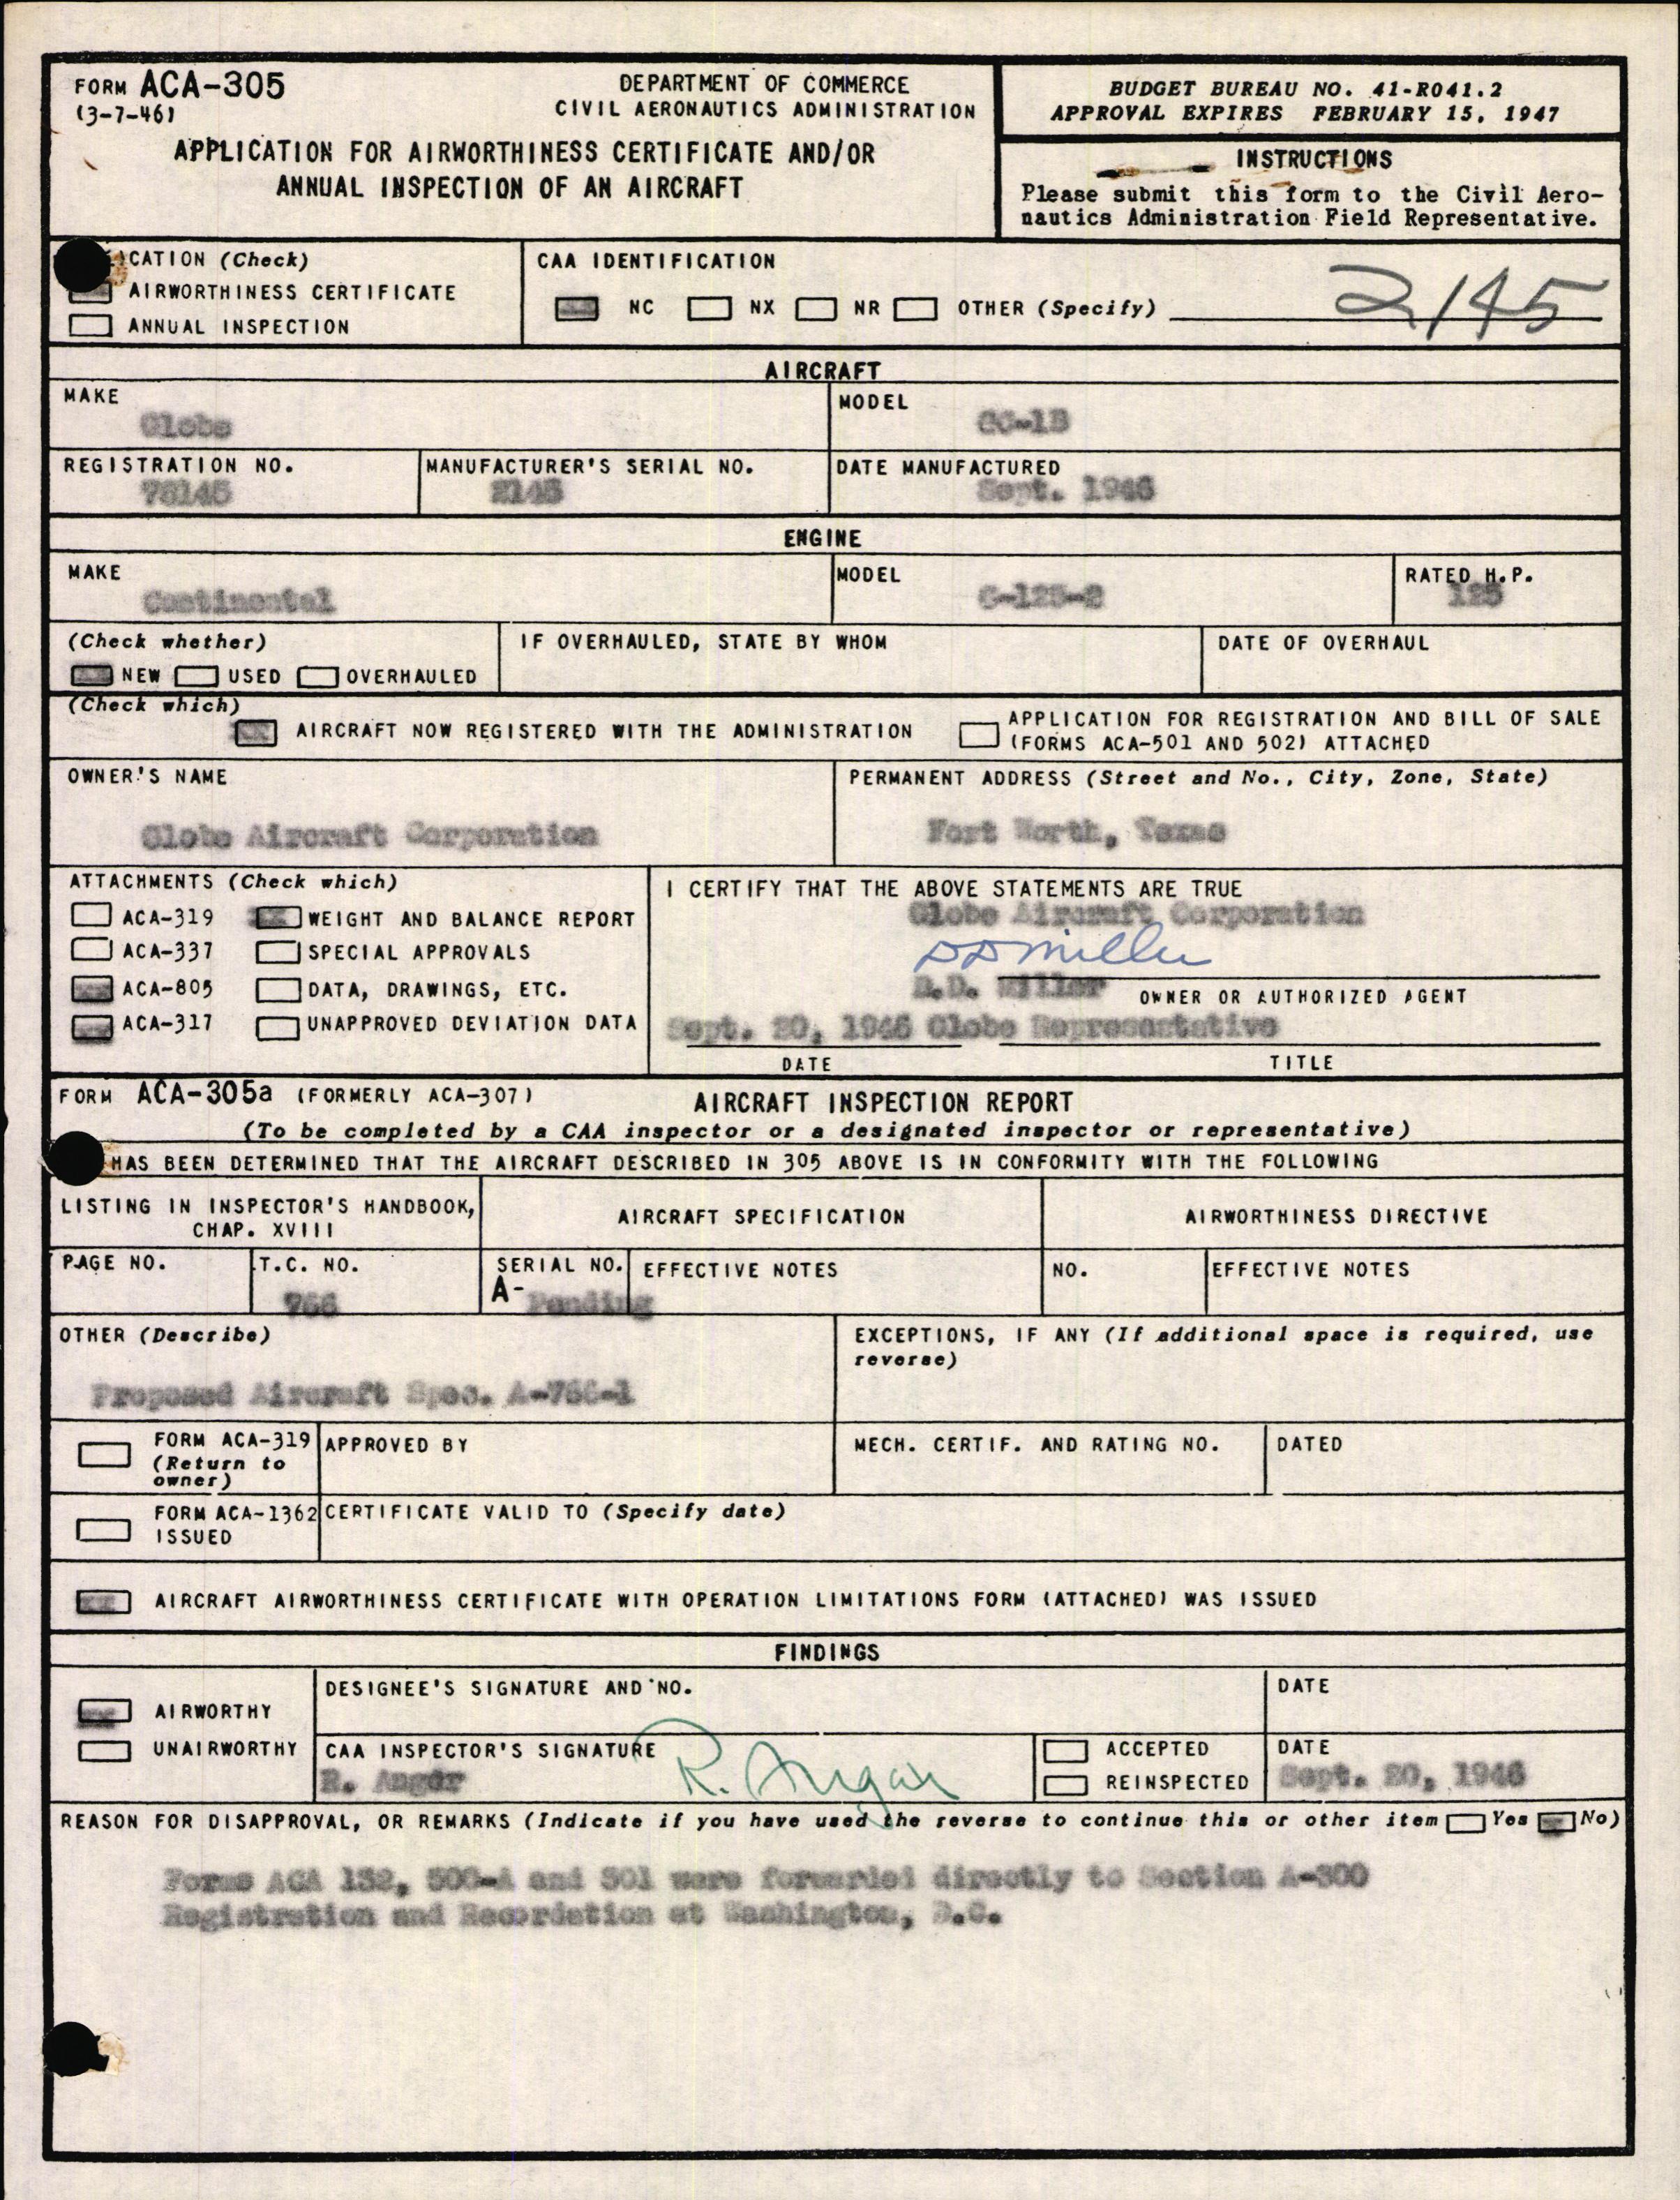 FORM ACA-305
(3-7-46)
DEPARTMENT OF COMMERCE
CIVIL AERONAUTICS ADMINISTRATION
APPLICATION FOR AIRWORTHINESS CERTIFICATE AND/OR
ANNUAL INSPECTION OF AN AIRCRAFT
BUDGET BUREAU NO. 41-R041.2
APPROVAL EXPIRES FEBRUARY 15, 1947
INSTRUCTIONS
Please submit this form to the Civil Aero-
nautics Administration Field Representative.
(Check)
AIRWORTHINESS CERTIFICATE
ANNUAL INSPECTION
CAA IDENTIFICATION
NC NX NR OTHER (Specify) 2145
AIRCRAFT
MAKE
Globe
MODEL
GC-1B
REGISTRATION NO.
MANUFACTURER'S SERIAL NO.
2145
DATE MANUFACTURED
Sept. 1946
ENGINE
MAKE
Continental
MODEL
C-125-2
RATED H.P.
125
(Check whether)
NEW USED OVERHAULED
IF OVERHAULED, STATE BY WHOM
DATE OF OVERHAUL
(Check which)
AIRCRAFT NOW REGISTERED WITH THE ADMINISTRATION
APPLICATION FOR REGISTRATION AND BILL OF SALE
(FORMS ACA-501 AND 502) ATTACHED
OWNER'S NAME
Globe Aircraft Corporation
PERMANENT ADDRESS (Street and No., City, Zone, State)
Fort Worth, Texas
ATTACHMENTS (Check which)
ACA-319 WEIGHT AND BALANCE REPORT
ACA-337 SPECIAL APPROVALS
ACA-805 DATA, DRAWINGS, ETC.
ACA-317 UNAPPROVED DEVIATION DATA
I CERTIFY THAT THE ABOVE STATEMENTS ARE TRUE
Globe Aircraft Corporation
DD Miller
D.D. Miller OWNER OR AUTHORIZED AGENT
Sept. 20, 1946 Globe Representative
DATE TITLE
FORM ACA-305a (FORMERLY ACA-307) AIRCRAFT INSPECTION REPORT
(To be completed by a CAA inspector or a designated inspector or representative)
HAS BEEN DETERMINED THAT THE AIRCRAFT DESCRIBED IN 305 ABOVE IS IN CONFORMITY WITH THE FOLLOWING
LISTING IN INSPECTOR'S HANDBOOK,
CHAP. XVIII
AIRCRAFT SPECIFICATION
AIRWORTHINESS DIRECTIVE
PAGE NO.
T.C. NO.
766
SERIAL NO.
A- Pending
EFFECTIVE NOTES
NO.
EFFECTIVE NOTES
OTHER (Describe)
Proposed Aircraft Spec. A-766-1
EXCEPTIONS, IF ANY (If additional space is required, use
reverse)
FORM ACA-319
(Return to
owner)
APPROVED BY
MECH. CERTIF. AND RATING NO.
DATED
FORM ACA-1362
ISSUED
CERTIFICATE VALID TO (Specify date)
AIRCRAFT AIRWORTHINESS CERTIFICATE WITH OPERATION LIMITATIONS FORM (ATTACHED) WAS ISSUED
FINDINGS
AIRWORTHY
UNAIRWORTHY
DESIGNEE'S SIGNATURE AND NO.
DATE
CAA INSPECTOR'S SIGNATURE
R. Angar
ACCEPTED
REINSPECTED
DATE
Sept. 20, 1946
REASON FOR DISAPPROVAL, OR REMARKS (Indicate if you have used the reverse to continue this or other item Yes No)
Forms ACA 132, 500-A and 501 were forwarded directly to Section A-300
Registration and Recordation at Washington, D.C.